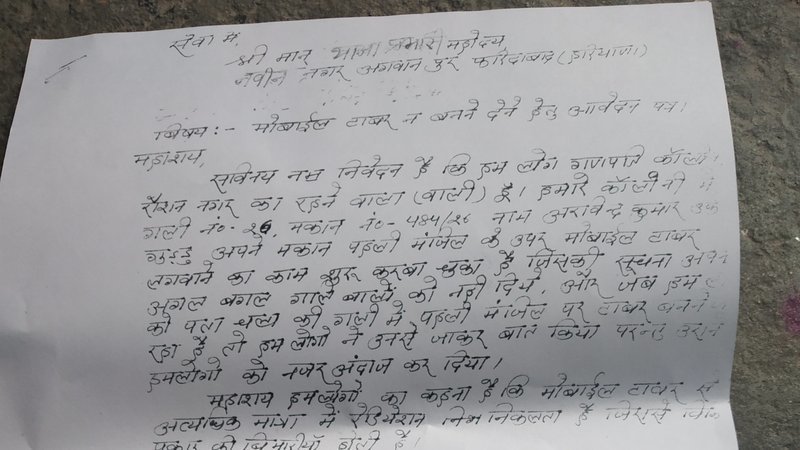 सेवा में,
श्री मान थाना प्रभारी महोदय
नवीन नगर अगवान पुर फरिदाबाद (हरियाणा)
विषय:- मोबाईल टावर न बनने देने हेतु आवेदन पत्र।
महाशय,
सविनय नम्र निवेदन है कि हम लोग गणपति कॉलो
रौशन नगर का रहने वाला (वाली) हूँ। हमारे कॉलोनी में
गली नं०- 26, मकान नं०- नाम अरविन्द कुमार उर्फ
गुड्डु अपने मकान पहली मंजिल के उपर मोबाईल टावर
लगवाने का काम शुरू करवा चुका है जिसकी सूचना अपने
अगल बगल गाले वालों को नही दिये, और जब हम
को पता चला की गली में पहली मंजिल पर टावर बनने
रहा है तो हमलोगो ने उनसे जाकर बात किया परन्तु उसने
हमलोगो को नजर अंदाज कर दिया।
महाशय हमलोगो का कहना है कि मोबाईल टावर से
अत्यधिक मात्रा में रेडियेशन निकलता है जिससे
प्रकार की बिमारीयाँ होती है।